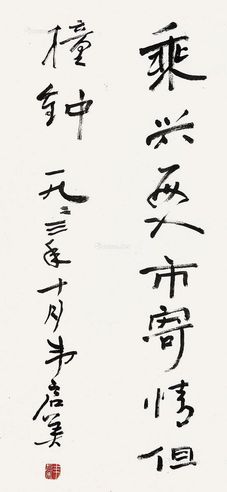 乘兴入市寄情但
撞钟 一九三年十月韦启美